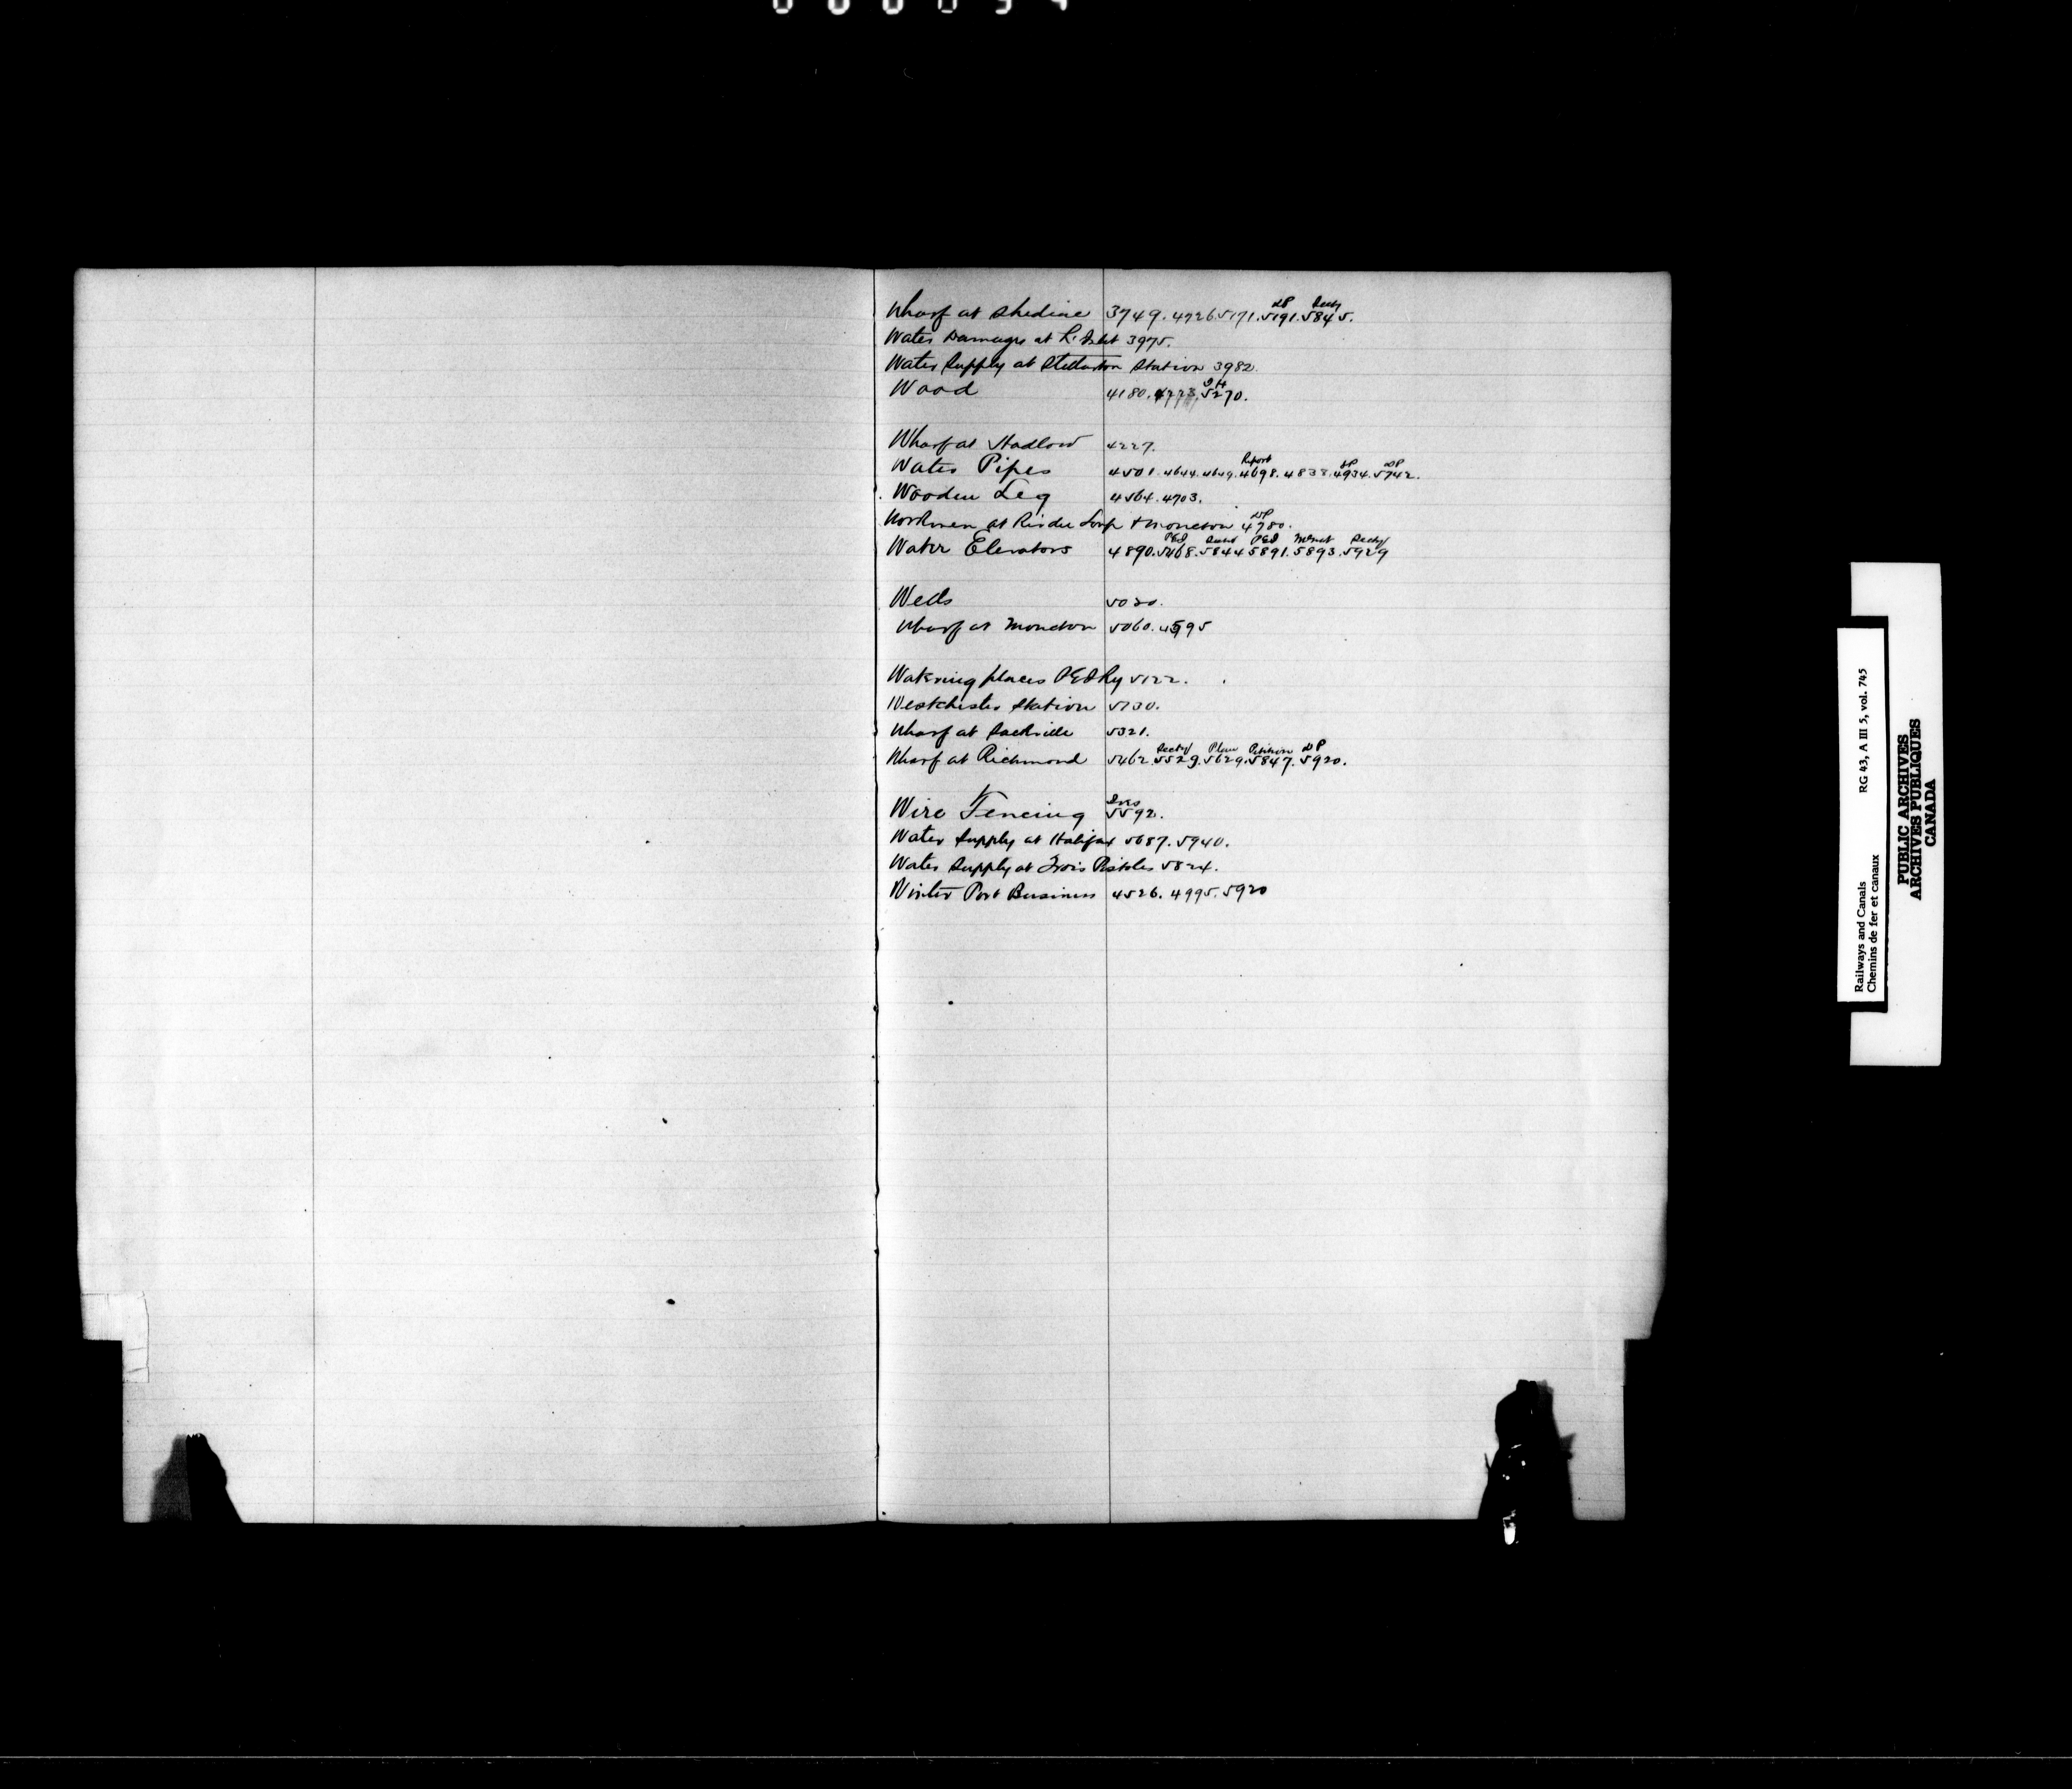 Wharf at Shediac 3749. 4726. 5171. DP 5191. Secty 5845.
Water Damages at L'Islet 3975.
Water Supply at Stellarton Station 3982.
Wood 4180. 4223. 5270.
Wharf at Hadlow 4227.
Water Pipes 4501. 4644. 4649. Report 4698. 4838. DP 4934. DP 5742.
Wooden Leg 4564. 4703.
Workmen at Rivière du Loup & Moncton DP 4780.
Water Elevators 4890. PEI 5468. 5844 PEI 5891. 5893. Secty 5929
Wells 5020.
Wharf at Moncton 5060. 4595
Watering places PEI Ry 5122.
Westchester Station 5130.
Wharf at Sackville 5321.
Wharf at Richmond 5462. Secty 5529. Plan 5629. Petition 5847. DP 5920.
Wire Fencing 5592.
Water Supply at Halifax 5687. 5940.
Water Supply at Trois Pistoles 5824.
Winter Port Business 4526. 4995. 5920
Railways and Canals RG 43, A III 5, vol. 745
Chemins de fer et canaux
PUBLIC ARCHIVES
ARCHIVES PUBLIQUES
CANADA